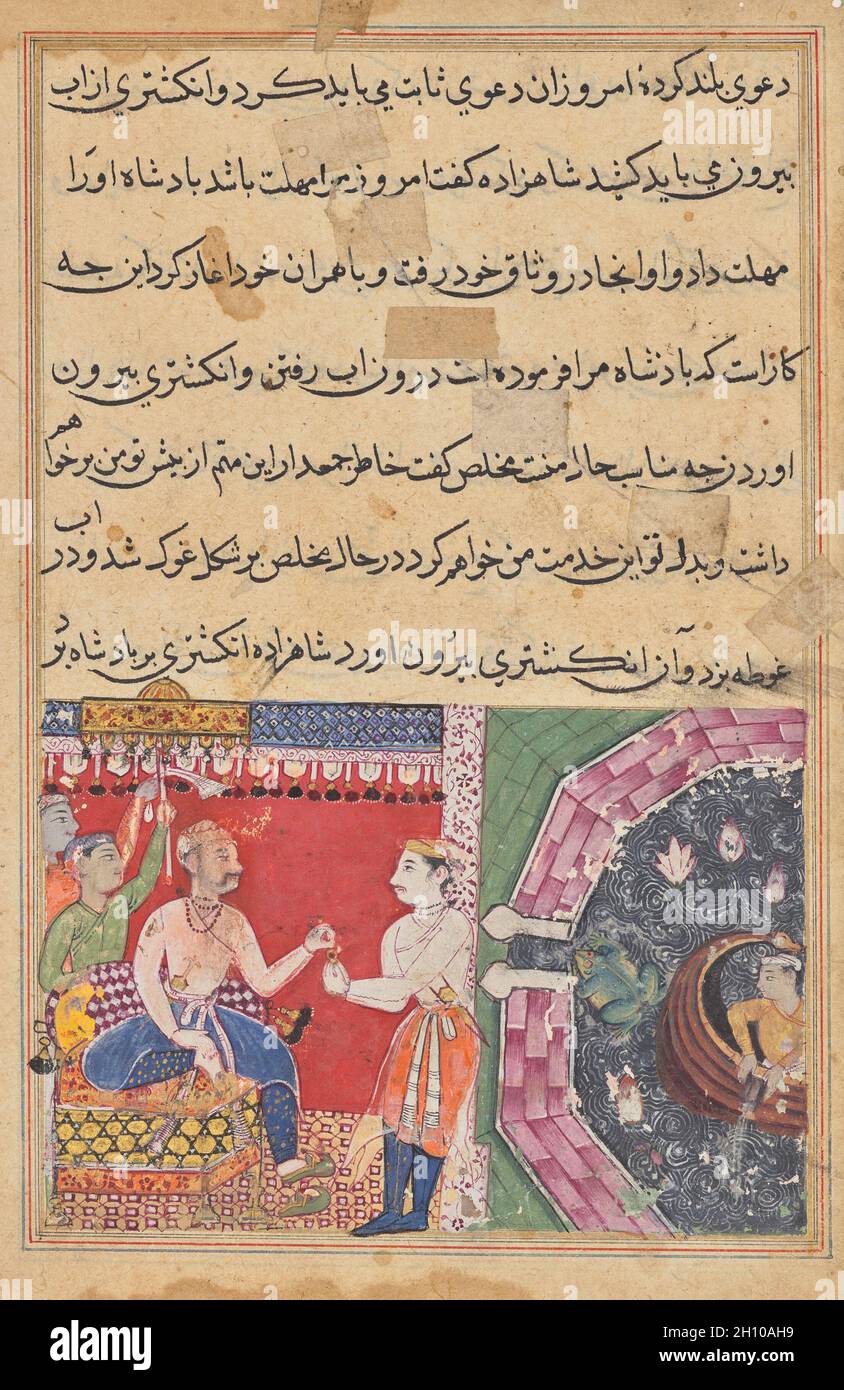 دعوي بلند كردهٔ امروز ان دعوي ثابت مي بايد كرد و انكشتري از اب
بيرون مي بايد كشيد شاهزاده كفت امروز مرا مهلت باشد بادشاه اورا
مهلت داد و او انجا در وثاق خود رفت و با همران خود اغاز كرد اين جه
كار است كه بادشاه مرا فرموده است درون اب رفتن و انكشتري بيرون
اوردن جه مناسب حال منست مخلص كفت خاطر جمعدار اين مهم از بيش تو من بر خواهم
داشت و بدل تو اين خدمت من خواهم كرد در حال مخلص بر شكل غوك شد و در اب
غوطه بزد و آن انكشتري بيرون اورد شاهزاده انكشتري بر بادشاه برد
alamy
alamy
Image ID: 2H10AH9
www.alamy.com